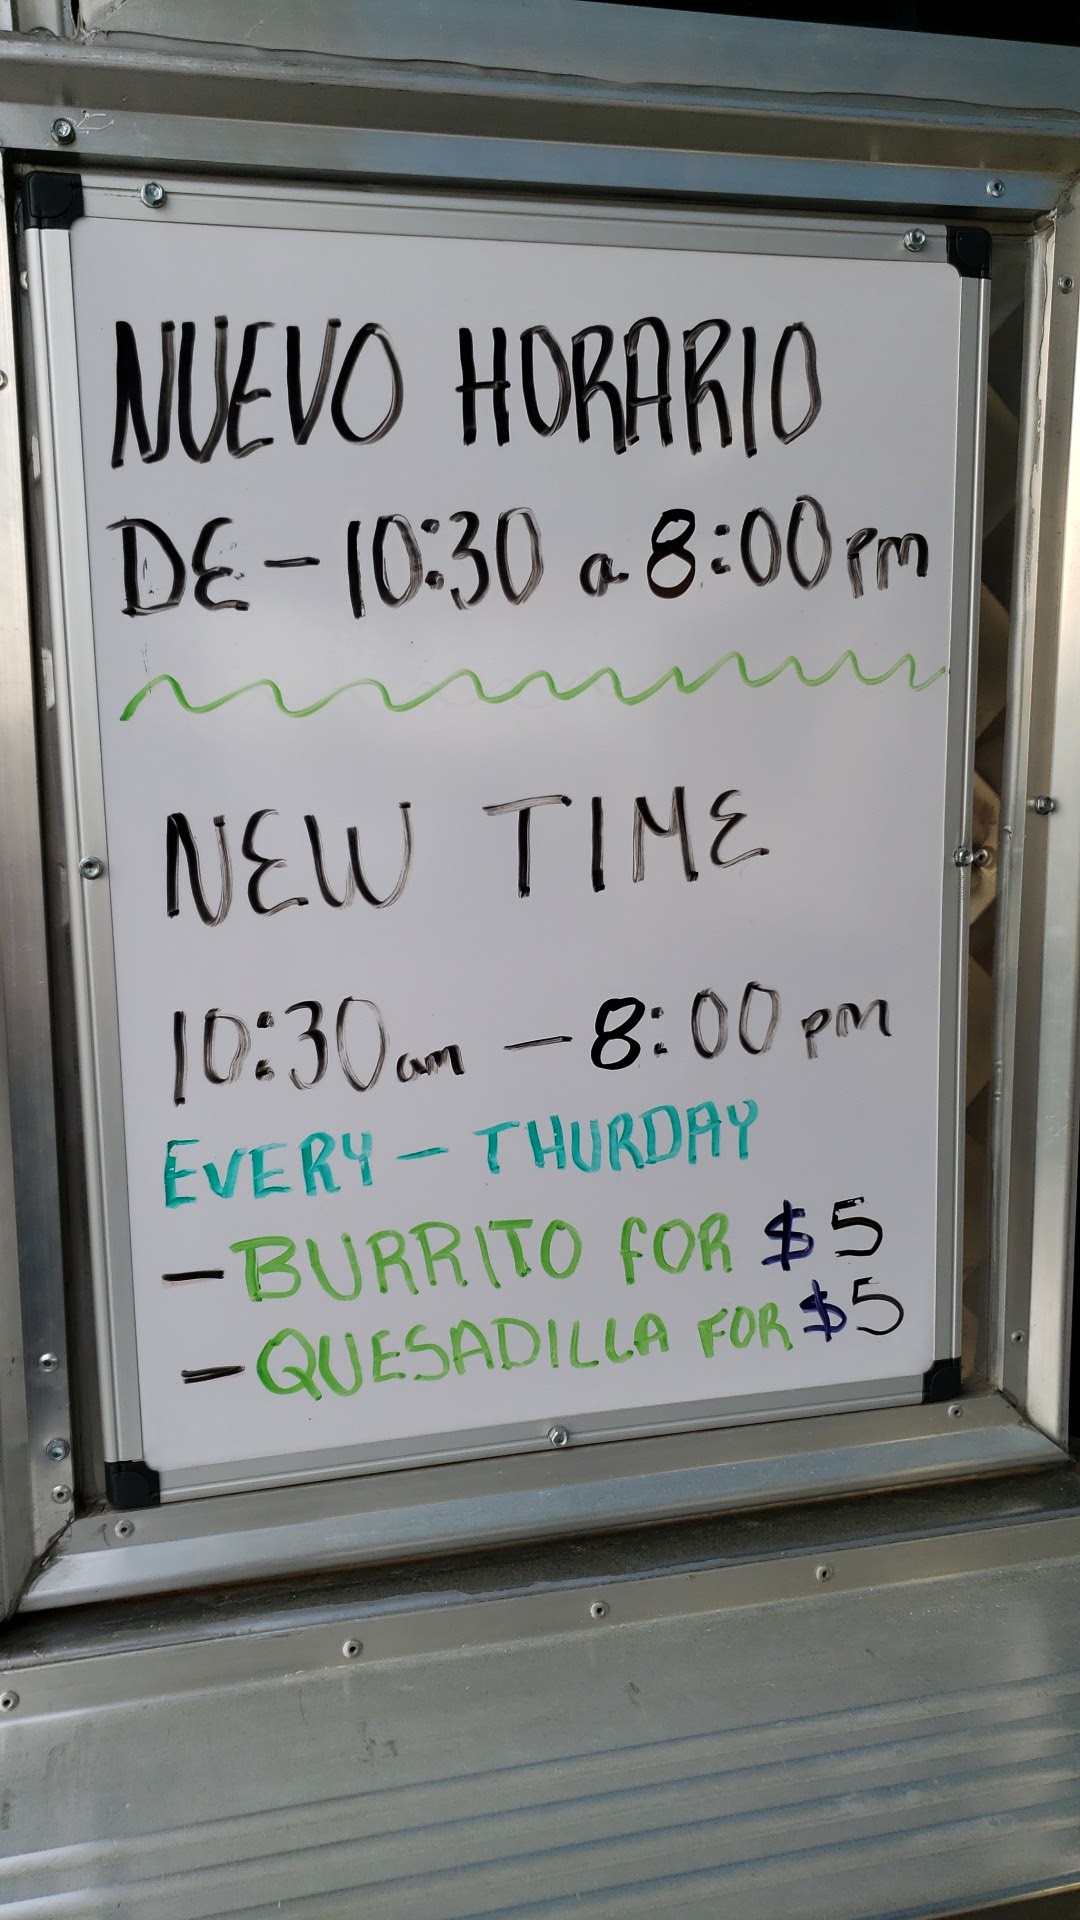 NUEVO HORARIO
DE - 10:30 a 8:00 pm
NEW TIME
10:30 am - 8:00 pm
EVERY - THURDAY
- BURRITO FOR $5
- QUESADILLA FOR $5